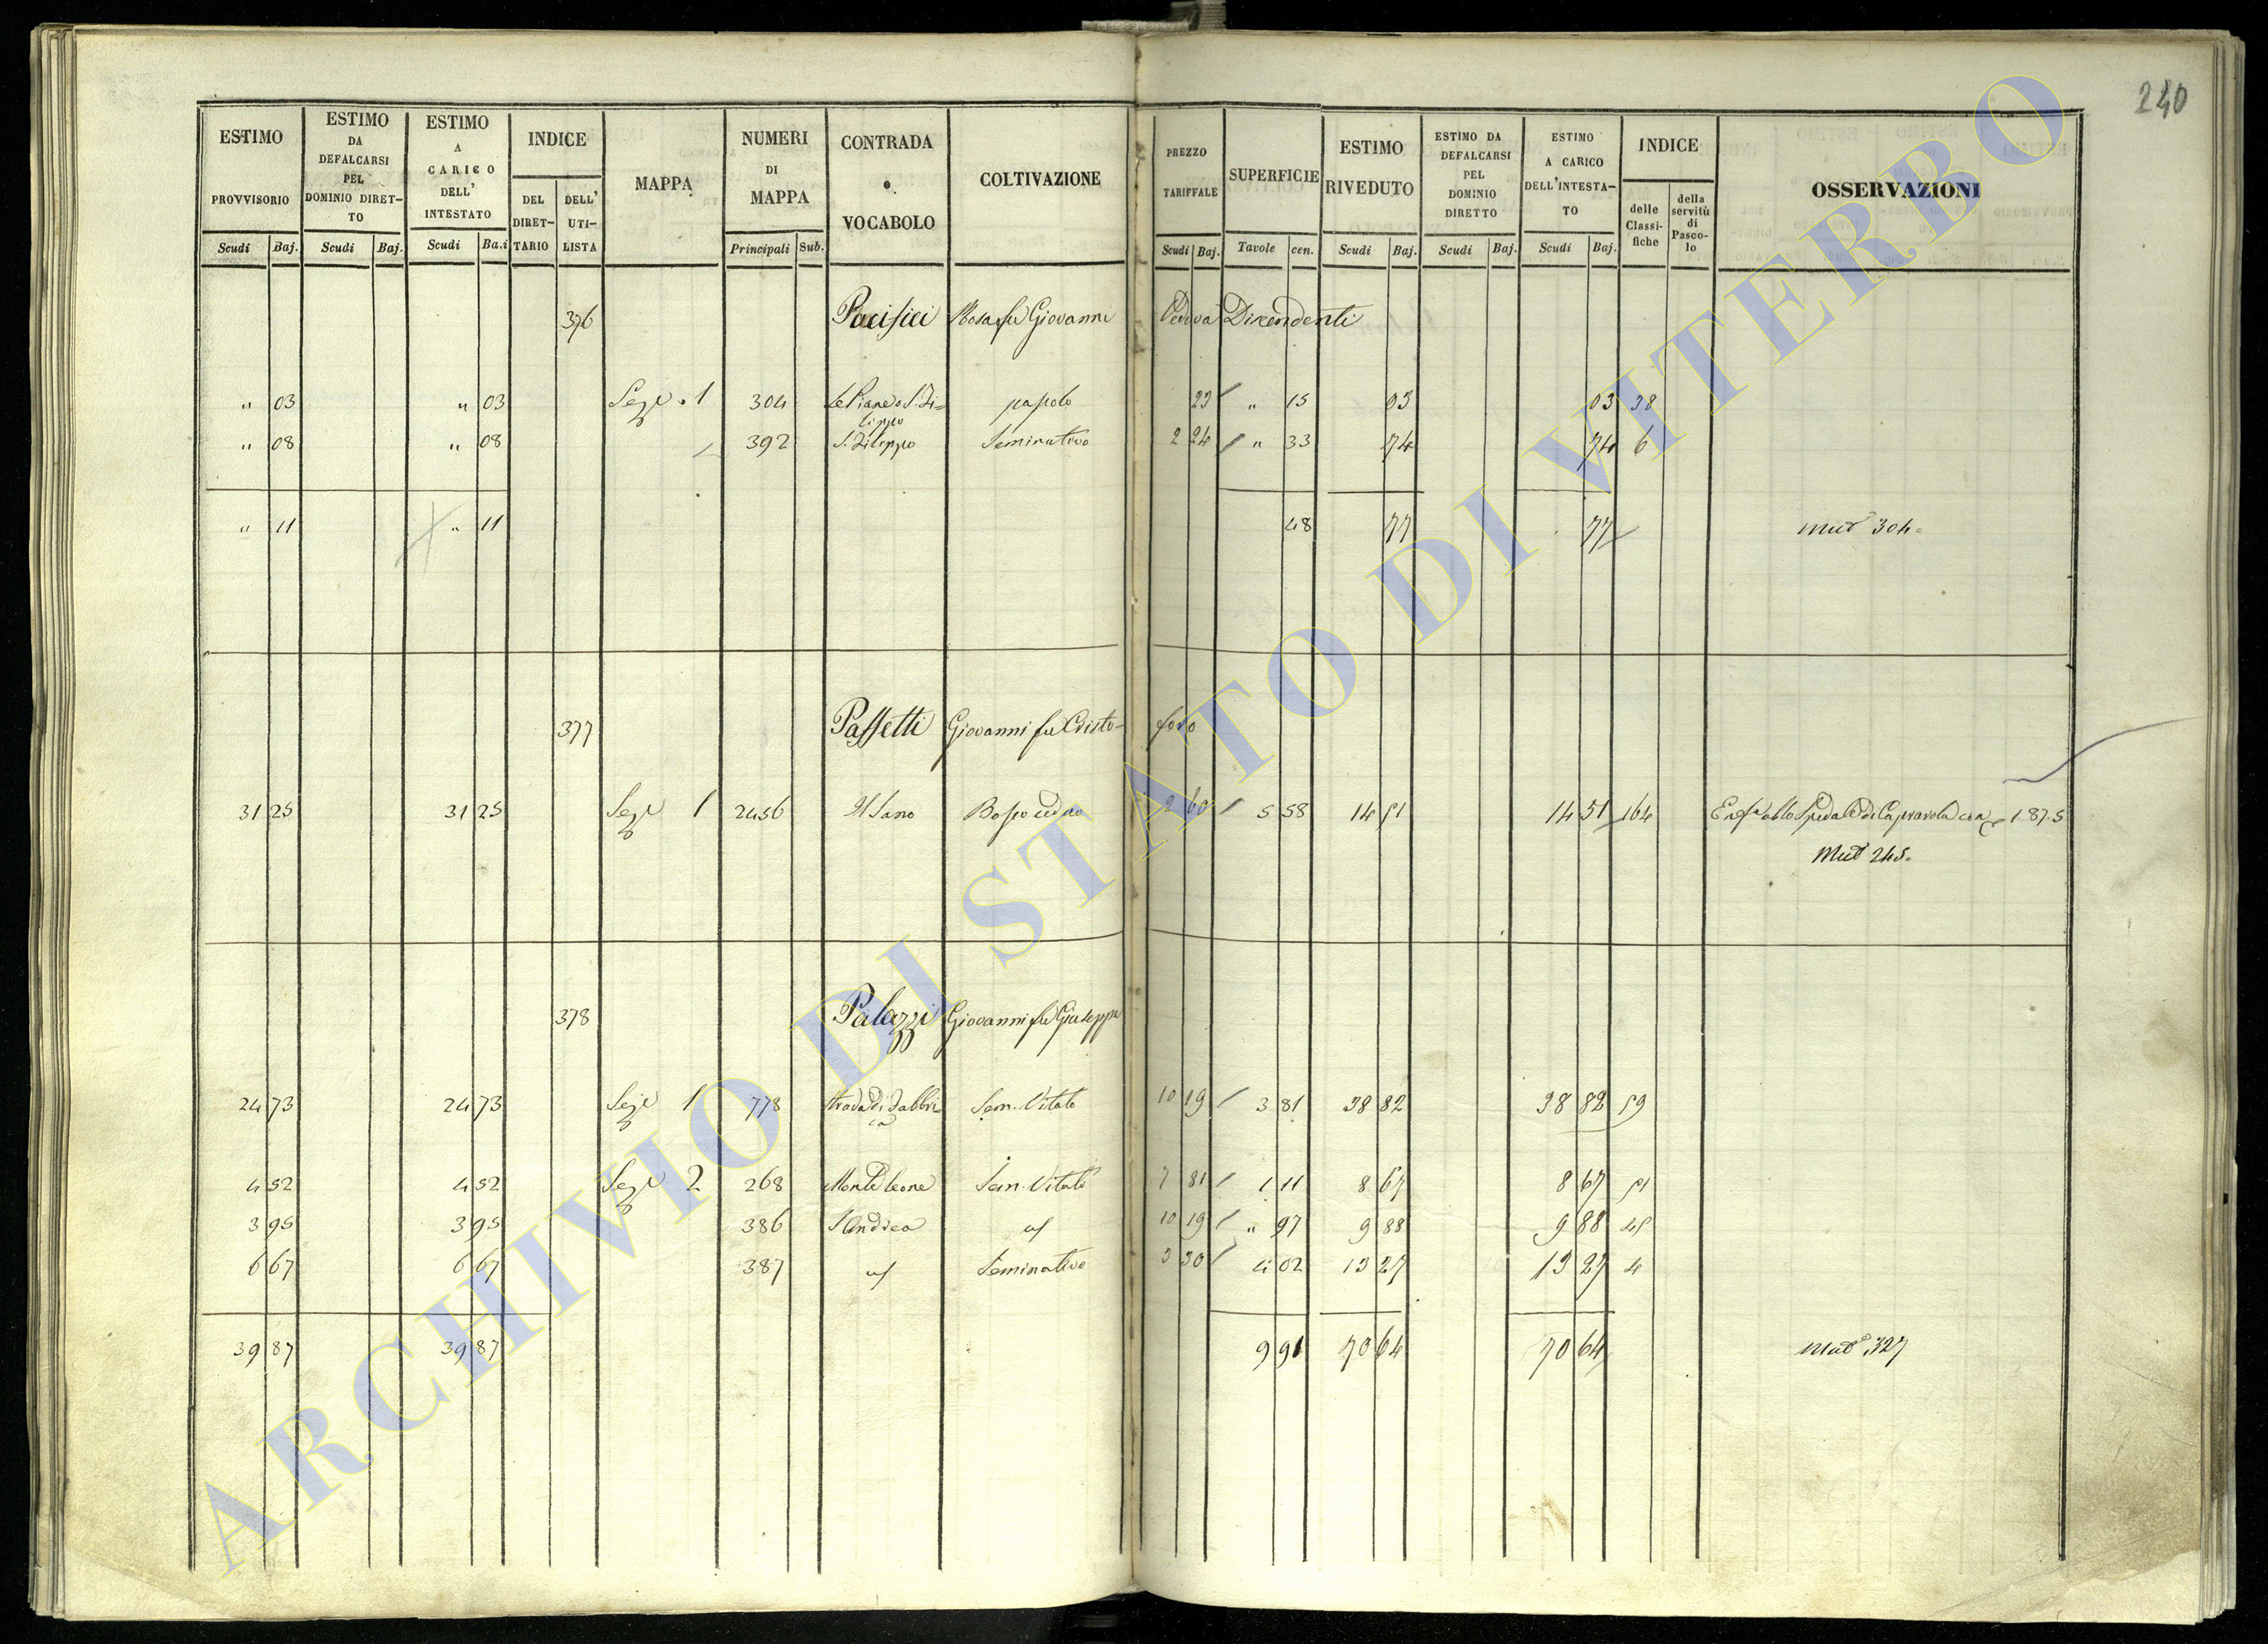 240
ESTIMO PROVVISORIO ESTIMO DA DEFALCARSI PEL DOMINIO DIRET-TO ESTIMO A CARICO DELL' INTESTATO INDICE DEL DIRET-TARIO DELL' UTI-LISTA MAPPA NUMERI DI MAPPA CONTRADA o VOCABOLO COLTIVAZIONE PREZZO TARIFFALE SUPERFICIE ESTIMO RIVEDUTO ESTIMO DA DEFALCARSI PEL DOMINIO DIRETTO ESTIMO A CARICO DELL'INTESTA-TO INDICE delle Classi-fiche della servitù di Pasco-lo OSSERVAZIONI
Scudi Baj. Scudi Baj. Scudi Ba.i Principali Sub. Scudi Baj. Tavole cen. Scudi Baj. Scudi Baj. Scudi Baj.
376 Pacifici Rosa fu Giovanni Vedova Dicendenti
" 03 " 03 Seze 1 304 Le Piane o S. Fi= 23 " 15 03 03 38
lippo
" 08 " 08 392 S. Filippo Seminativo 2 24 " 33 74 74 6
" 11 " 11 48 77 77 Mut 304=
377 Passetti Giovanni fu Cristo- foro
31 25 31 25 Seze 1 2456 Bosco ceduo 2 60 5 58 14 51 14 51 164 Spedale di Caprarola 1.87.5
Mut 245.
378 Palazzi Giovanni fu Giuseppe
24 73 24 73 Seze 1 778 Strada di Fabbri Sem. Vitato 10 19 3 81 38 82 38 82 59
ca
4 52 4 52 Seze 2 268 Monte leone Sem. Vitato 7 81 1 11 8 67 8 67 51
3 95 3 95 386 S. Andrea 10 19 " 97 9 88 9 88 45
6 67 6 67 387 Seminativo 3 30 4 02 13 27 13 27 4
39 87 39 87 9 91 70 64 70 64 Mut 327
ARCHIVIO DI STATO DI VITERBO